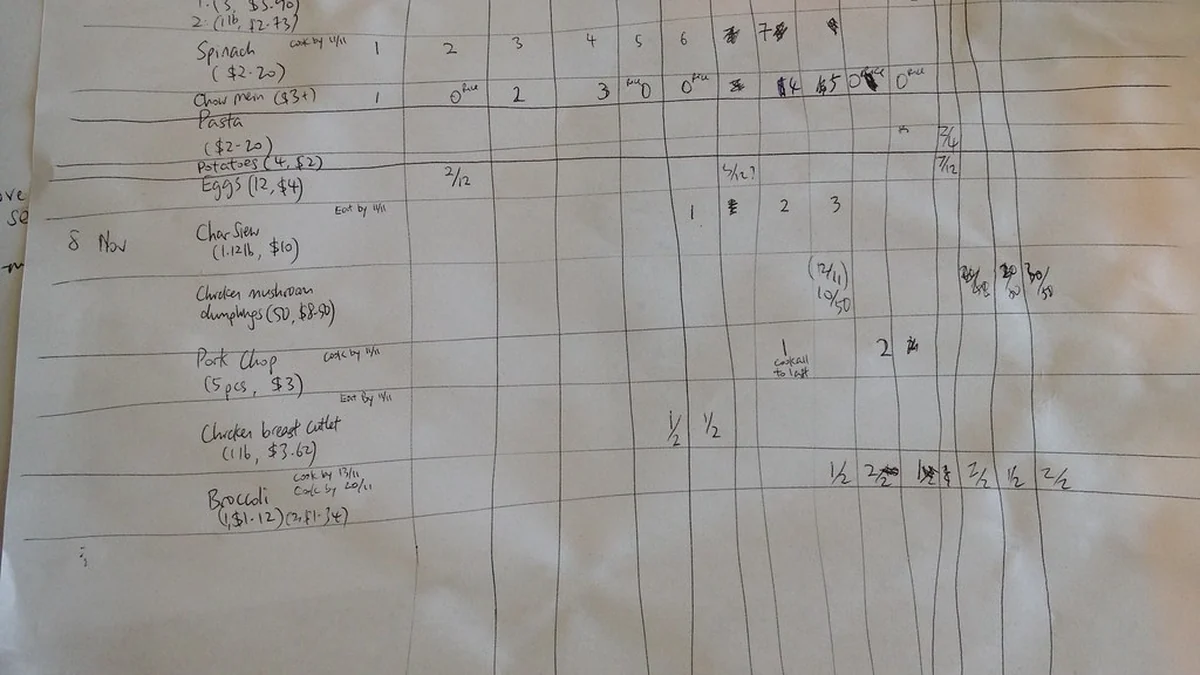 1. (3, $3.90)
2. (1lb, $2.73)
Spinach cook by 11/11 1 2 3 4 5 6 7
($2.20)
Chow mein ($3+) 1 0 rice 2 3 rice 0 0 rice $4 5 0 0 rice
Pasta
($2.20) 2/4
Potatoes (4, $2)
Eggs (12, $4) 2/12 5/12? 7/12
Eat by 11/11
8 Nov Char Siew 1 2 3
(1.12lb, $10)
Chicken mushroom (12/11) 30/50
dumplings (50, $8.50) 10/50
Pork Chop cook by 11/11 1 2
(5pcs, $3) cook all to last
Eat By 11/11
Chicken breast cutlet 1/2 1/2
(1lb, $3.62)
cook by 13/11
Broccoli Cook by 20/11 1/2 2/2 2/2 1/2 2/2
(1, $1.12) (2, $1.34)